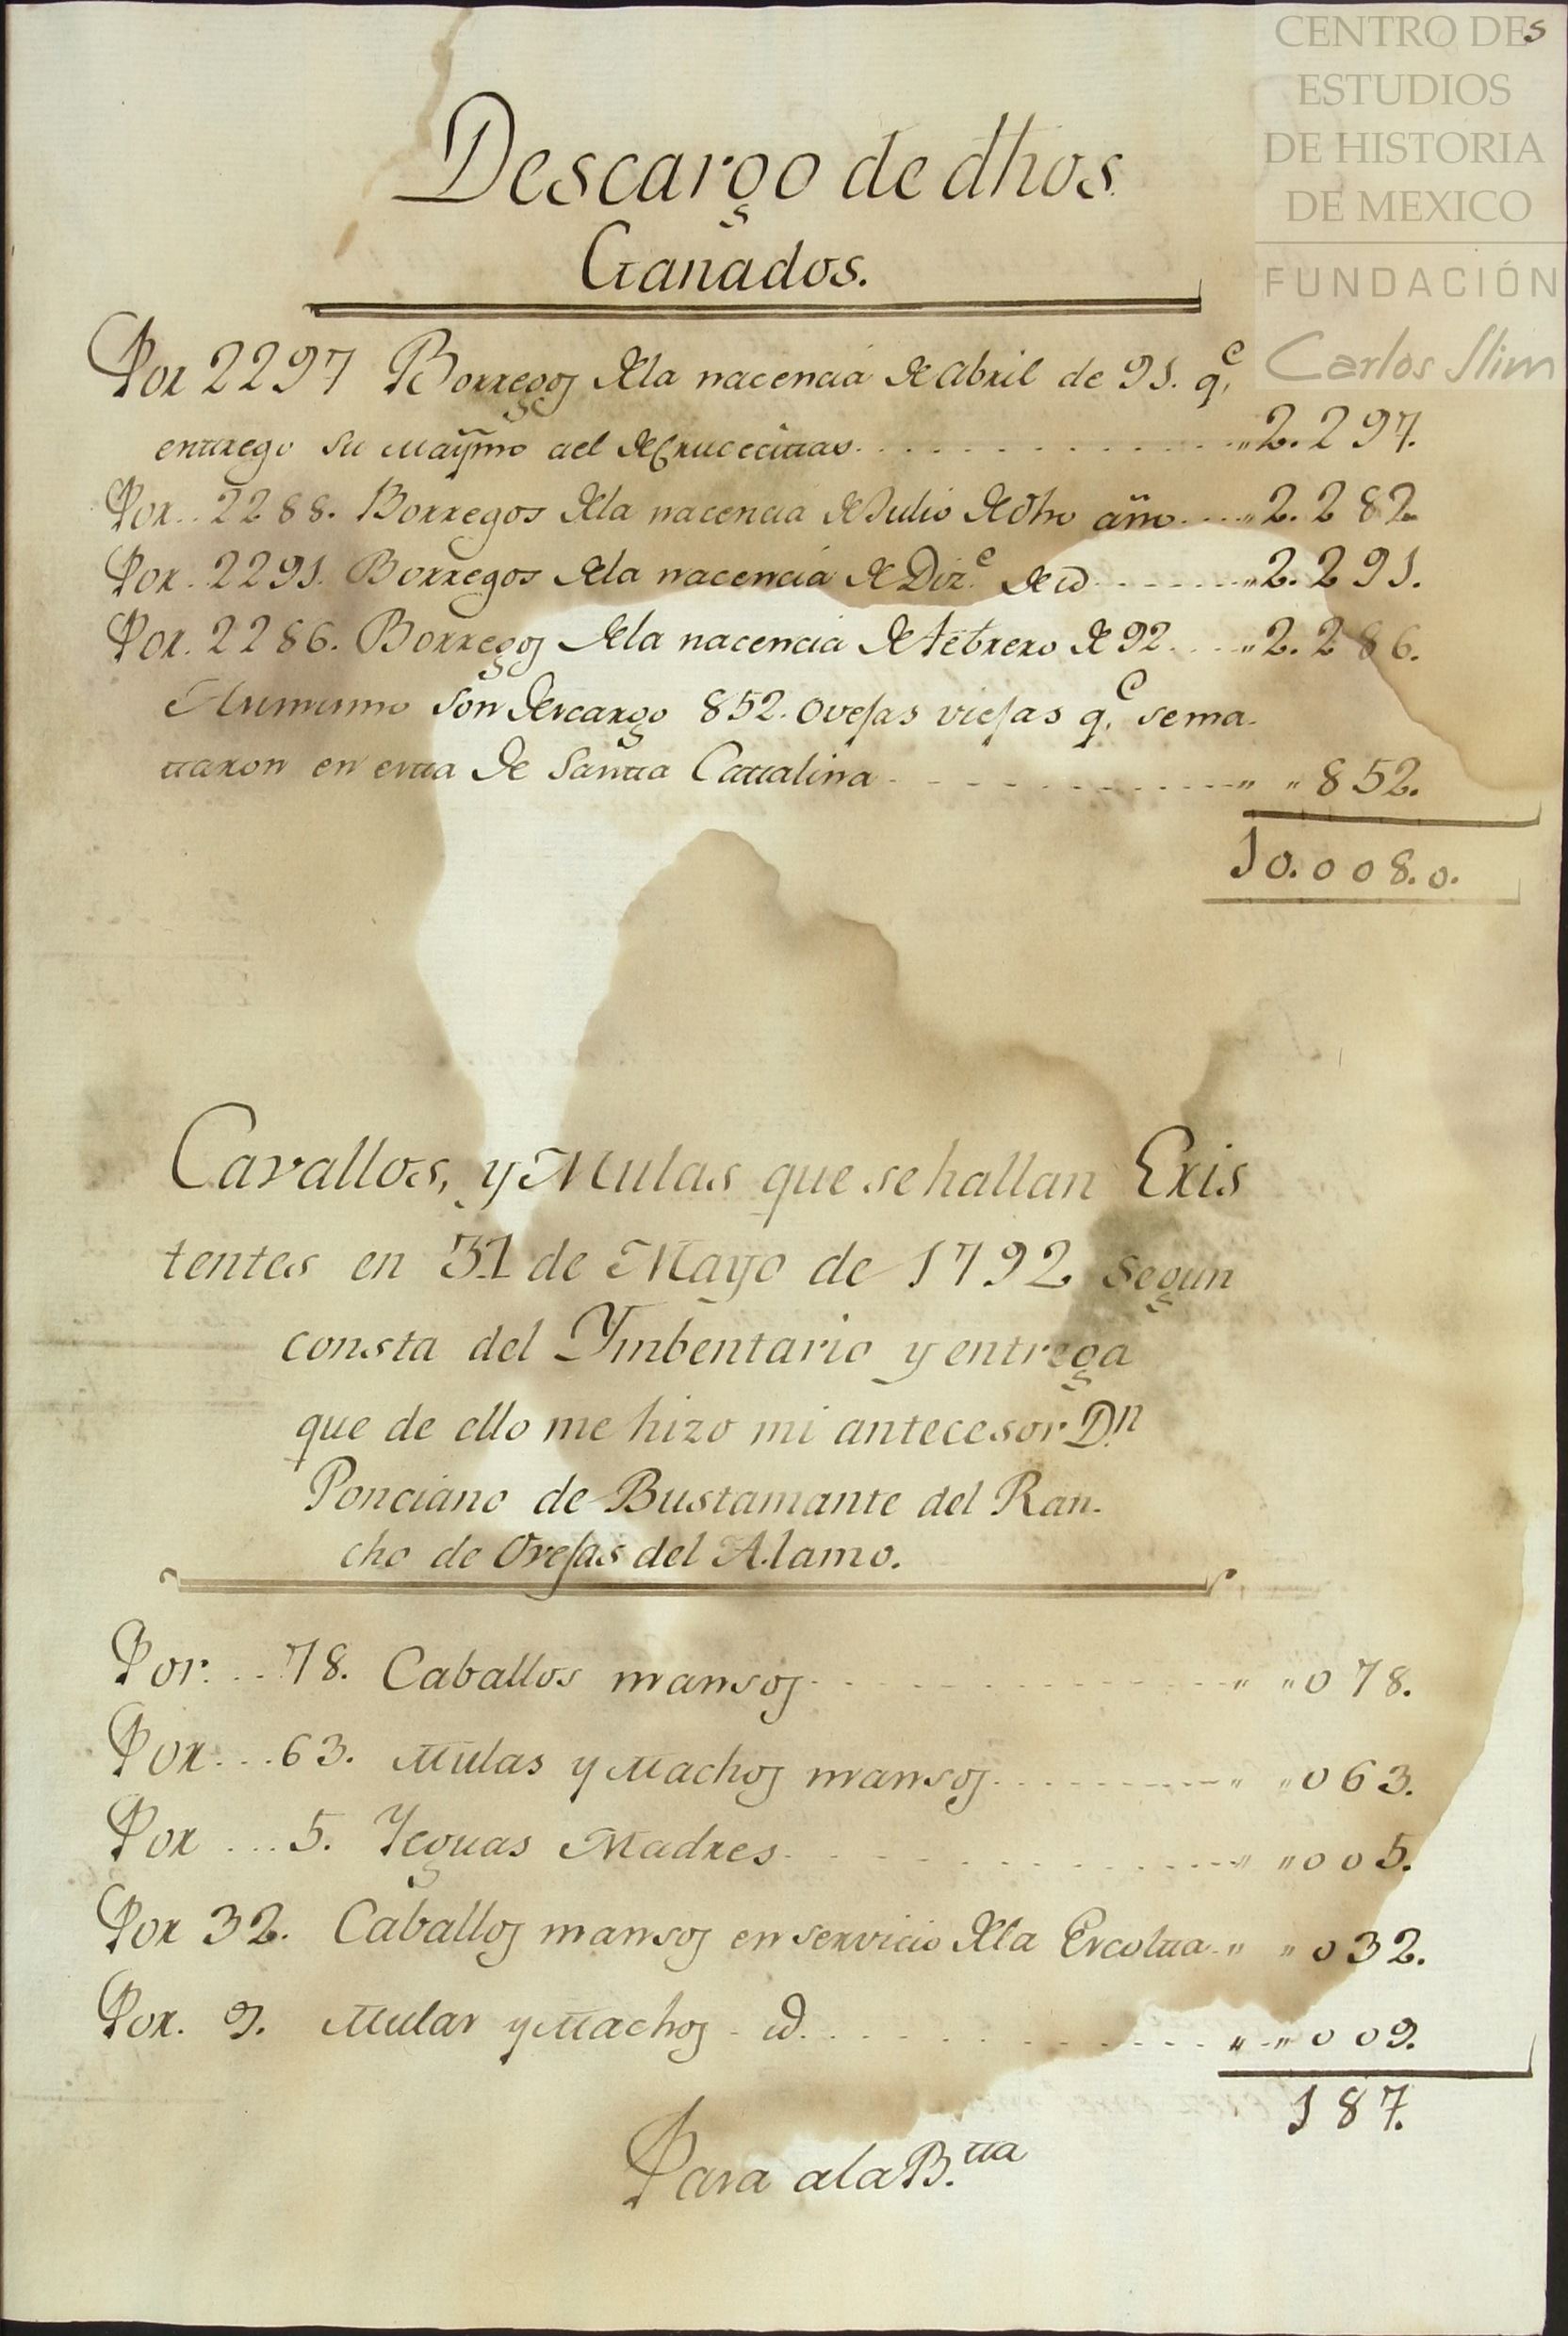 CENTRO DE
ESTUDIOS
DE HISTORIA
DE MEXICO
FUNDACIÓN
Carlos Slim
5
Descargo de dhos
Ganados.
Por 2297 Borregos dela nacencia de Abril de 91. q.e
entrego su Maymo ael de Crucecittas. " 2.297.
Por.. 2288. Borregos dela nacencia de Julio de dho año. " 2.282.
Por. 2291. Borregos dela nacencia de Diz.e de id " 2.291.
Por. 2286. Borregos dela nacencia de febrero de 92. " 2.286.
Asimismo son descargo 852. ovejas viejas q.e se ma-
ttaron en estta de Santta Cattalina " " 852.
10.008.0.
Cavallos, y Mulas que se hallan Exis
tentes en 31 de Mayo de 1792 segun
consta del Ymbentario y entrega
que de ello me hizo mi antecesor D.n
Ponciano de Bustamante del Ran-
cho de Ovejas del Alamo.
Por... 78. Caballos mansos " " 078.
Por... 63. Mulas y Machos mansos " " 063.
Por ... 5. Yeguas Madres " " 005.
Por 32. Caballos mansos en servicio dela Escoltta " " 032.
Por. 9. Mulas y Machos - id. " " 009.
187.
Para ala B.tta